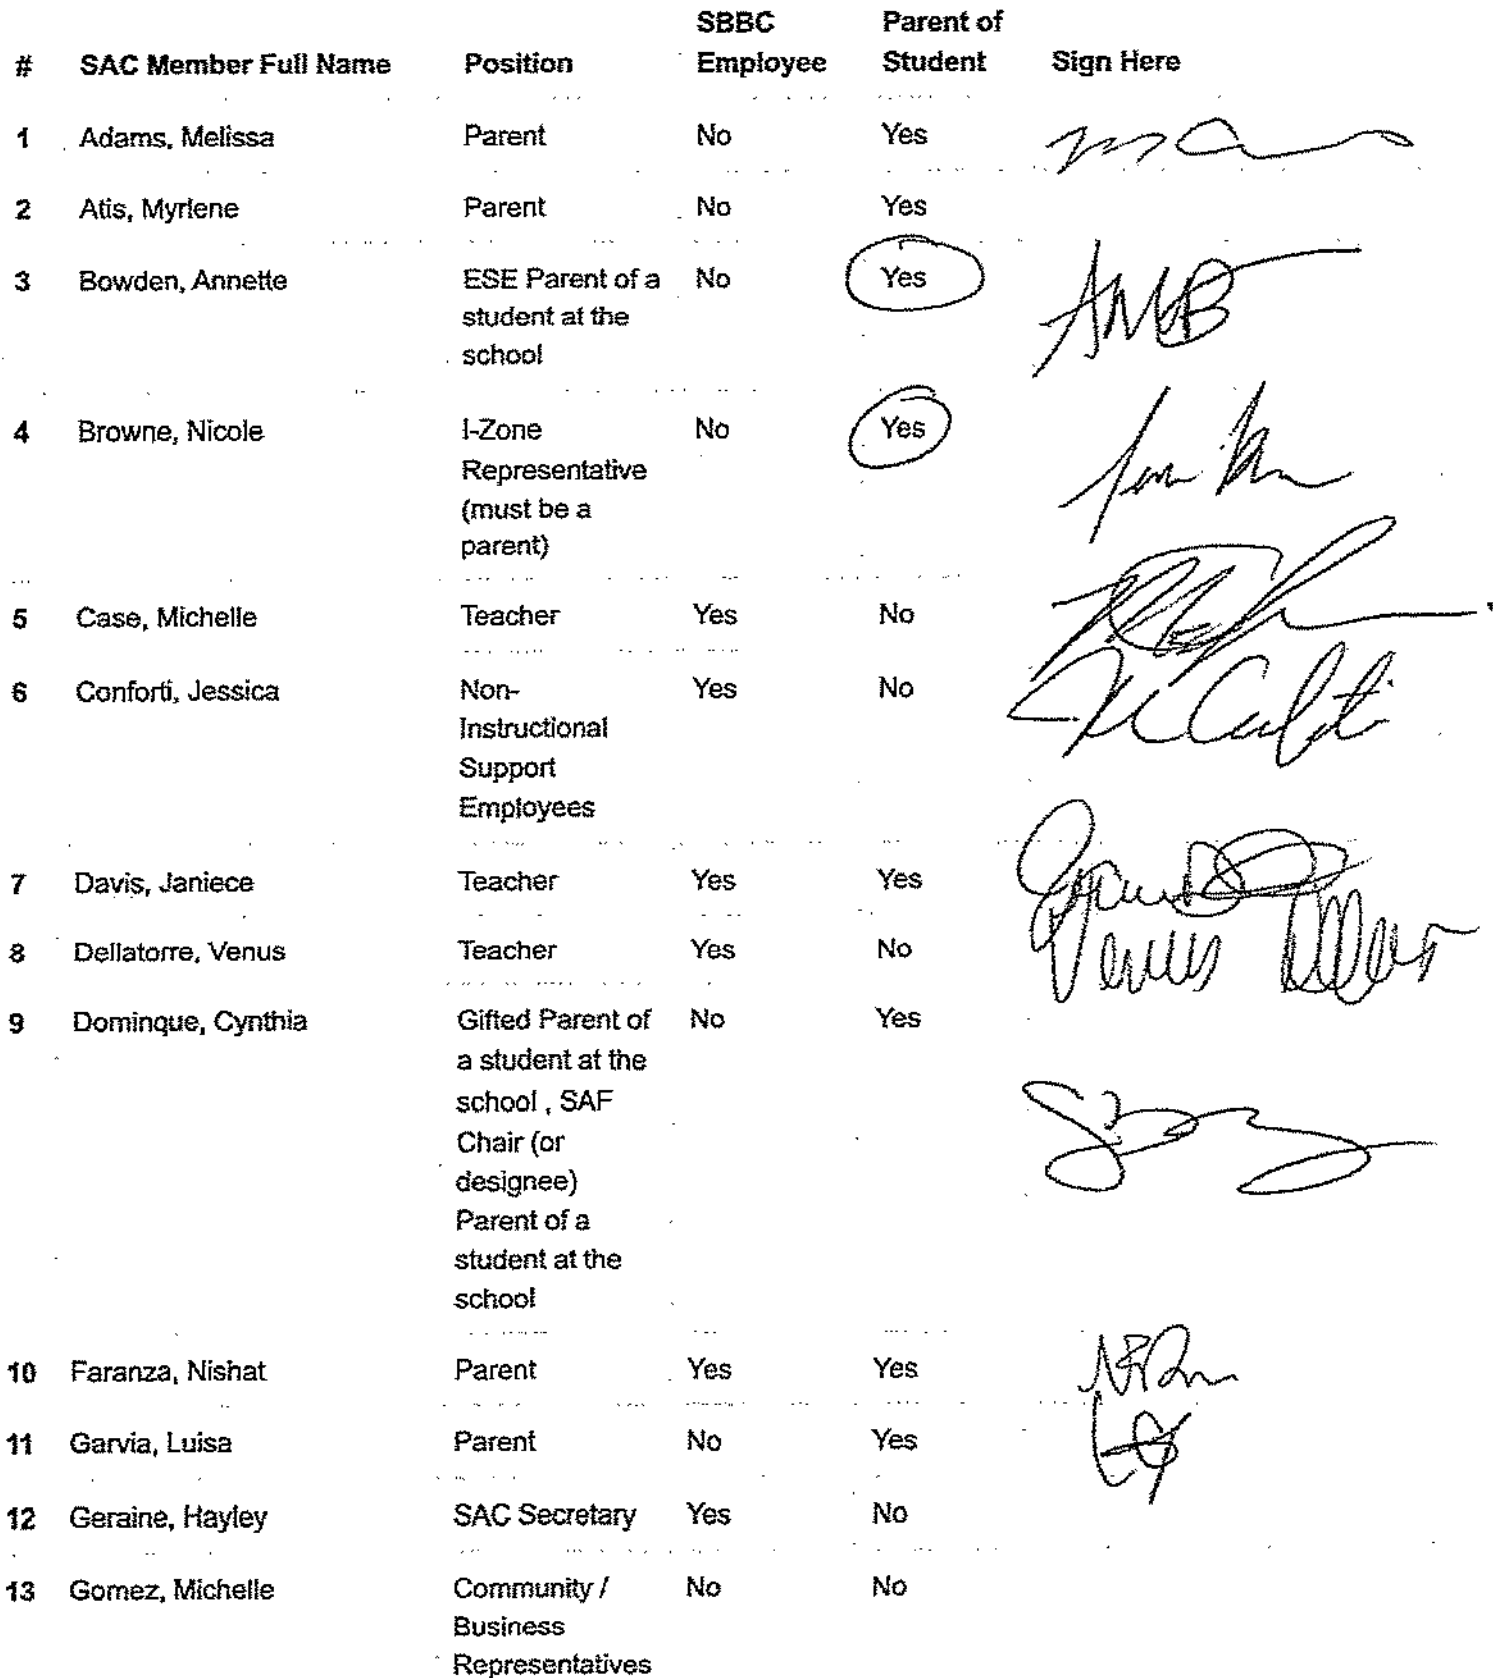 SBBC Parent of
# SAC Member Full Name Position Employee Student Sign Here
1 Adams, Melissa Parent No Yes
2 Atis, Myrlene Parent No Yes
3 Bowden, Annette ESE Parent of a No Yes AMB
student at the
school
4 Browne, Nicole I-Zone No Yes
Representative
(must be a
parent)
5 Case, Michelle Teacher Yes No
6 Conforti, Jessica Non- Yes No
Instructional
Support
Employees
7 Davis, Janiece Teacher Yes Yes
8 Dellatorre, Venus Teacher Yes No Venus
9 Dominque, Cynthia Gifted Parent of No Yes
a student at the
school , SAF
Chair (or
designee)
Parent of a
student at the
school
10 Faranza, Nishat Parent Yes Yes
11 Garvia, Luisa Parent No Yes LG
12 Geraine, Hayley SAC Secretary Yes No
13 Gomez, Michelle Community / No No
Business
Representatives